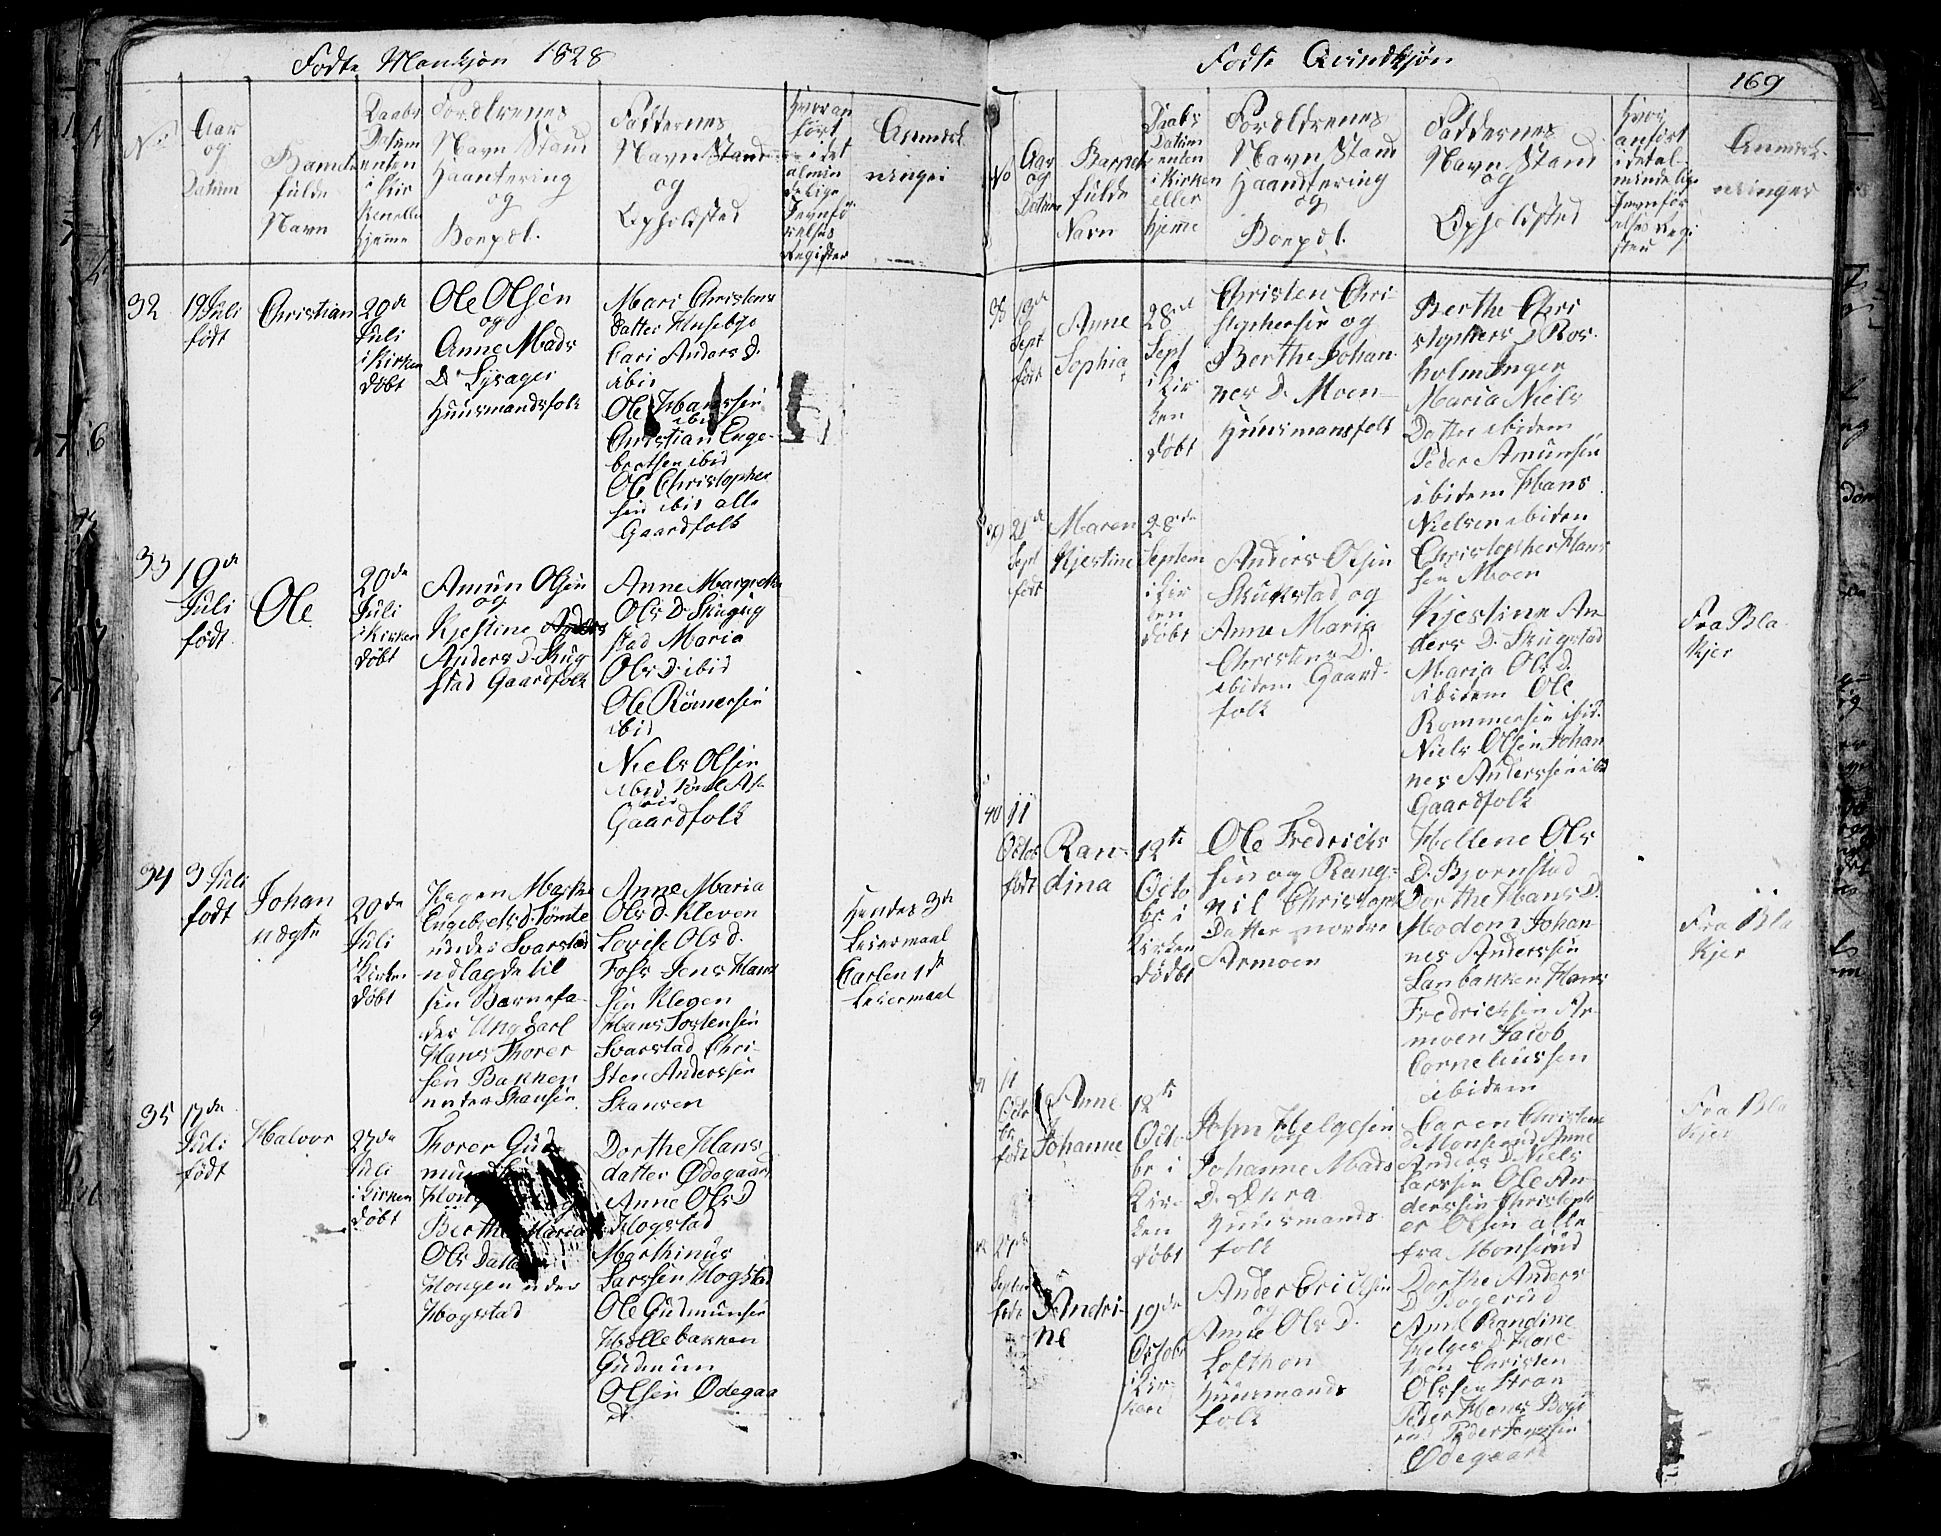 Fødte Mankjøn 1828
No
Aar
og
Datum
Barnets
fulde
Navn
Daabs
Datum
enten
i Kir
ken eller
hjeme
Forældrenes
Navn Stand
Haantering
og
Boepæl.
Faddernes
Navn Stand
og
Opholdsted
Hvor an
ført
i det
almin
delige
Jevnfø
relses
Register
Anmerk
ninger
32
19 Juli
født
Christian
20de
Juli
i Kirken
døbt
Ole Olsen
og
Anne Mads
D. Lysager
Huusmandsfolk
Mari Christens
datter Husebye
Cari Anders D.
ibid
Ole Hanssen
ibid
Christian Enge-
bretsen ibid
Ole Christopher
sen ibid alle
Gaardfolk
33
10de
Juli
født
Ole
20de
Juli
i Kirken
døbt
Amun Olsen
og
Kjestine
Anders D. Skug
stad Gaardfolk
Anne Margrethe
Ols D. Skug
stad Maria
Ols D. ibid
Ole Römersen
ibid
Niels Olsen
ibid
Gaardfolk
34
3 Juli
født
Johan
uægte
20de
Juli
i Kirken
døbt
Kagen Marthe
Engebrets d. Tømte
under Svarstad
udlagde til
sin Barnefa-
der Ung Carl
Hans Thorer
sen Bakken
under Skansen
Anne Maria
Ols D. Kleven
Lovise Ols d.
Foss Jens Hans
sen Klegen
Hans Tostensen
Svarstad Chri-
sten Anderssen
Skansen
Hendes 3de
Leiermaal
Carlen 1ste
Leiermaal
35
17de
Juli
født
Halvor
27de
Juli
i Kirken
døbt
Thorer Gud
Berthe Maria
Ols Datter
Hougen under
Hogstad
Dorthe Hans
datter Ødegaard
Anne Ols D
Hogstad
Marthinus
Larssen Hogstad
Ole Gudmunsen
Hollebakken
Gudmun
Olsen Ødegaa
d.
Fødte Qvindkjøn
169
No
Aar
og
Datum
Barnets
fulde
Navn
Daabs
Datum
enten
i Kirken
eller
hjeme
Forældrenes
Navn Stand
Haandtering
og
Boepæl.
Faddernes
Navn Stand
og
Opholdsted
Hvor
anført
i det al-
mindelige
Jevnfør
elses Regi
ster
Anmerk-
ninger
38
19de
Sept
født
Anne
Sophia
28de
Sept
i Kir
ken
døbt
Christen Chri-
stophersen og
Berthe Johan
nes D. Moen
Huusmansfolk
Berthe Chri
stophers D Ros
holm Inger
Maria Niels
Datter ibidem
Peder Amunsen
ibidem Hans
Nielsen ibidem
Christopher Hans
sen Moen
39
21de
Sept
født
Maren
Kjestine
28de
Septem
i Kir
ken
døbt
Anders Olsen
Skukstad og
Anne Maria
Christens D.
ibidem Gaard-
folk
Kjestine An
ders D. Skugstad
Maria Ols D.
ibidem Ole
Rommersen ibid.
Niels Olsen Johan
nes Anderssen ibd
Gaardfolk
Fra Bla
kjer
40
11
Octob
født
Ran-
dina
12te
Octo
br i
Kirken
dødbt
Ole Fredrichs
sen og Rang-
nil Christoph
Datter nordre
Armoen
Hellene Ols
D. Bjørnstad
Dorthe Hans D.
Modem Johan
nes Anderssen
Lanbakken Hans
Fredrichsen Ar-
moen Jacob
Corneliussen
ibidem
Fra Bla
kjer
41
11
Octo
br
født
Anne
Johanne
12te
Octo-
br i
Kir-
ken
døbt
John Helgesen
og
Johanne Mads
D. Økra
Huusmands
folk
Caren Christens
D. Monserud Anne
Anders D. Niels
Larssen Ole An-
derssen Christoph
er Olsen alle
fra Monserud
Fra Bla
kjer
42
27de
Septbr
født
Andri-
ne
19de
Octobr
i Kir
ken
Anders Ericksen
og
Anne Ols D.
Lofthon
Huusmands
folk
Dorthe Anders
D Bogerud
Anne Randine
Helges D. Hore-
Christen
Olssen Stran
Peder Hans Boge
rud Peder Jenssen
Ødegaard